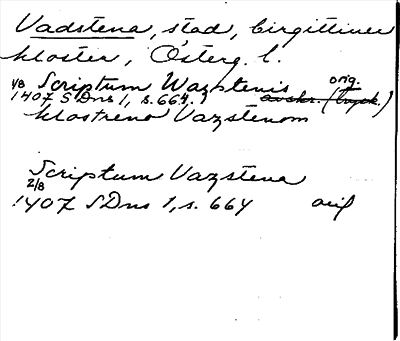 Vadstena, stad, birgittiner
kloster, Österg. l.
1/8 Scriptum Wazstenis orig.
1407 SDns 1, s. 664. avskr. (tryck.)
klostreno Vazstenom
Scriptum Vazstena
2/8
1407 SDns 1, s. 664 orig